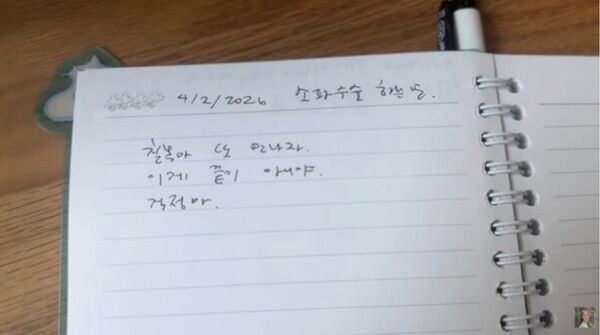 4/2/2026 소파수술 하는 날.
칠복아 또 만나자.
이게 끝이 아니야.
걱정마.